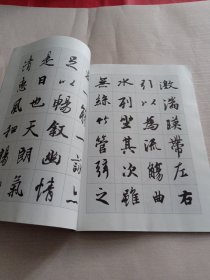 激湍暎帶左右
引以為流觴曲
水列坐其次雖
無絲竹管弦之
盛一觴一詠亦
足以暢敘幽情
是日也天朗氣
清惠風和暢